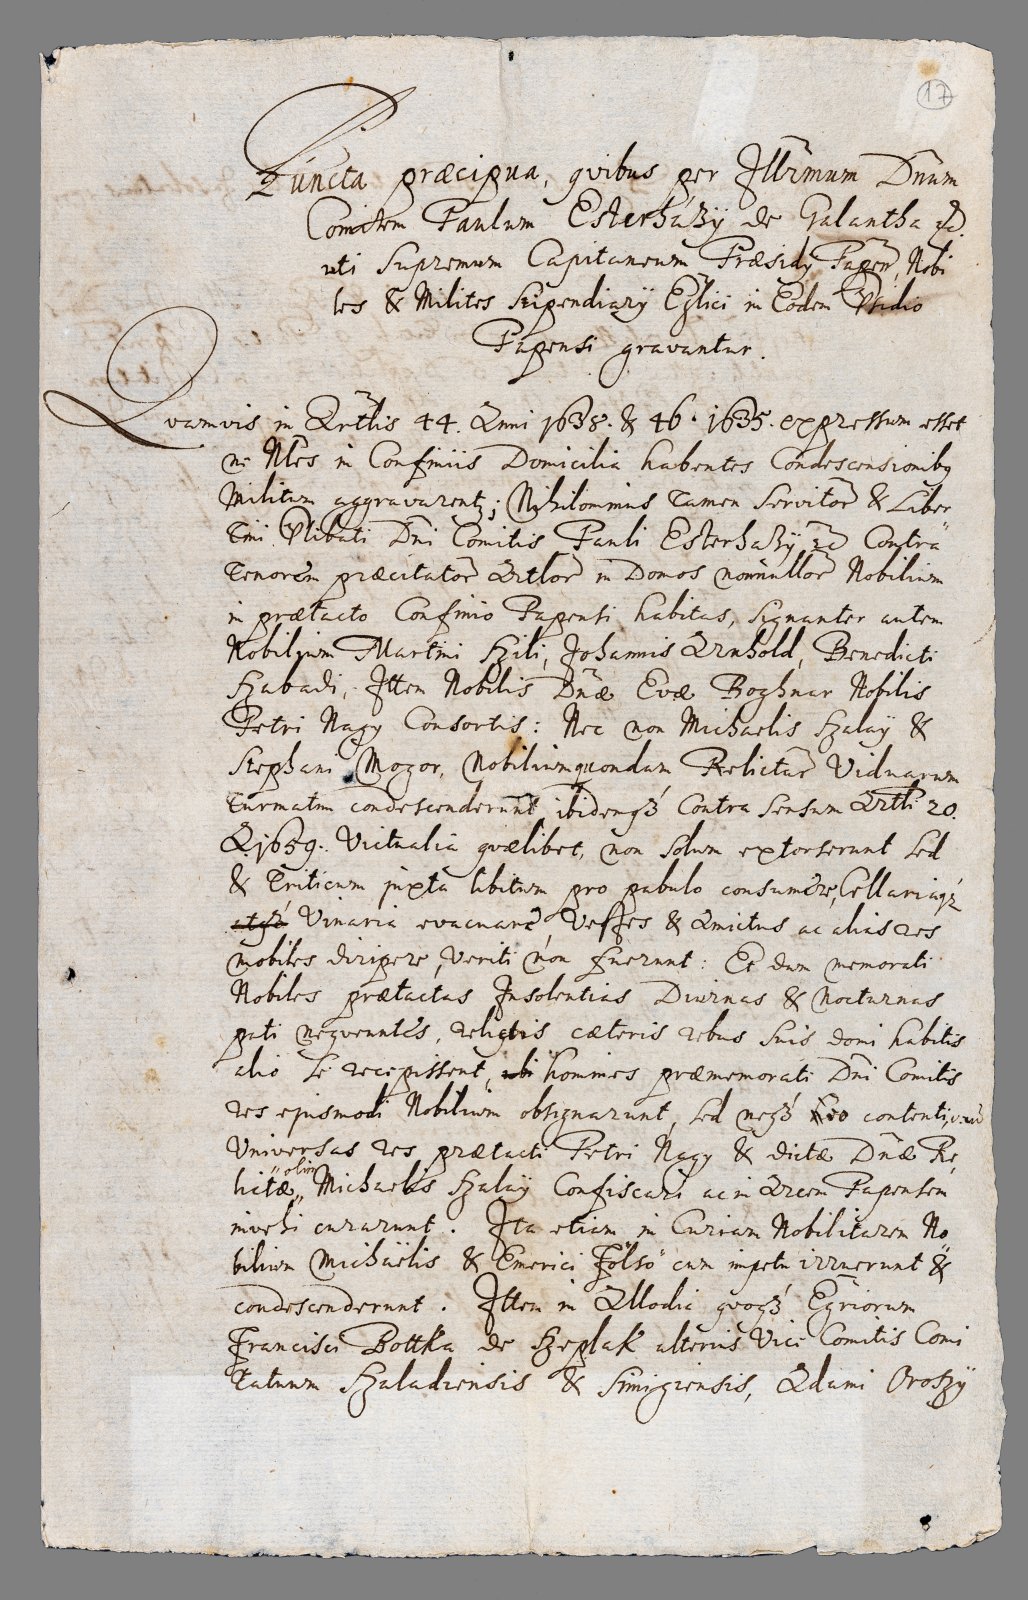 17
Puncta præcipua, qvibus per Illrmum Dnum
Comitem Paulum Esterhazÿ de Galantha &c.
uti Supremum Capitaneum Præsidÿ Papen, Nobi
les & Milites Stipendiarÿ Eqlici in Eodem Psidio
Papensi gravantur.
Qvamvis in Artlis 44. Anni 1638. & 46. 1635. expressum esset
ne Nles in Confiniis Domicilia habentes Condescensionibq
Militum aggravarentr; Nihilominus tamen Servitor & Liber
tini Plibati Dni Comitis Pauli Esterhazÿ &c Contra
tenorem præcitator Artlor in Domos nonnullor Nobilium
in prætacto Confinio Papensi habitas, signanter autem
Nobilium Martini Szili, Johannis Arnhold, Benedicti
Szabadi, Ittem Nobilis Dnæ Evæ Boghnar Nobilis
Petri Nagy Consortis: Nec non Michaelis Szalaÿ &
Stephani Mozor, Nobilium quondam Relictar Viduarum
turmatim condescenderunt ibidemq3 Contra sensum Artli 20.
A. 1659. Victualia qvælibet, non solum extorserunt sed
& Triticum juxta libitum pro pabulo consumere, Cellariaq3
atq3 Vinaria evacuare, Vestes & Amictus ac alias res
mobiles diripere, veriti non fuerunt: Et dum memorati
Nobiles prætactas Insolentias Diurnas & Nocturnas
pati neqvenntes, relictis cæteris rebus suis domi habitis
alio se recepissent, ubi homines præmemorati Dni Comitis
res ejusmodi Nobilium obsignarunt, sed neq3 eo contenti,
Universas res prætacti Petri Nagy & dictæ Dnæ Re,
lictæ olim Michaelis Szalaÿ Confiscari ac in Arcem Papensem
invehi curarunt. Ita etiam in Curiam Nobilitarem No
bilium Michaëlis & Emerici Fölsö cum impetu irruerunt &
condescenderunt. Ittem in Allodia qvoq3 Egriorum
Francisci Bottka de Szeplak alterius Vice Comitis Comi
tatuum Szaladiensis & Simigiensis, Adami Oroszÿ